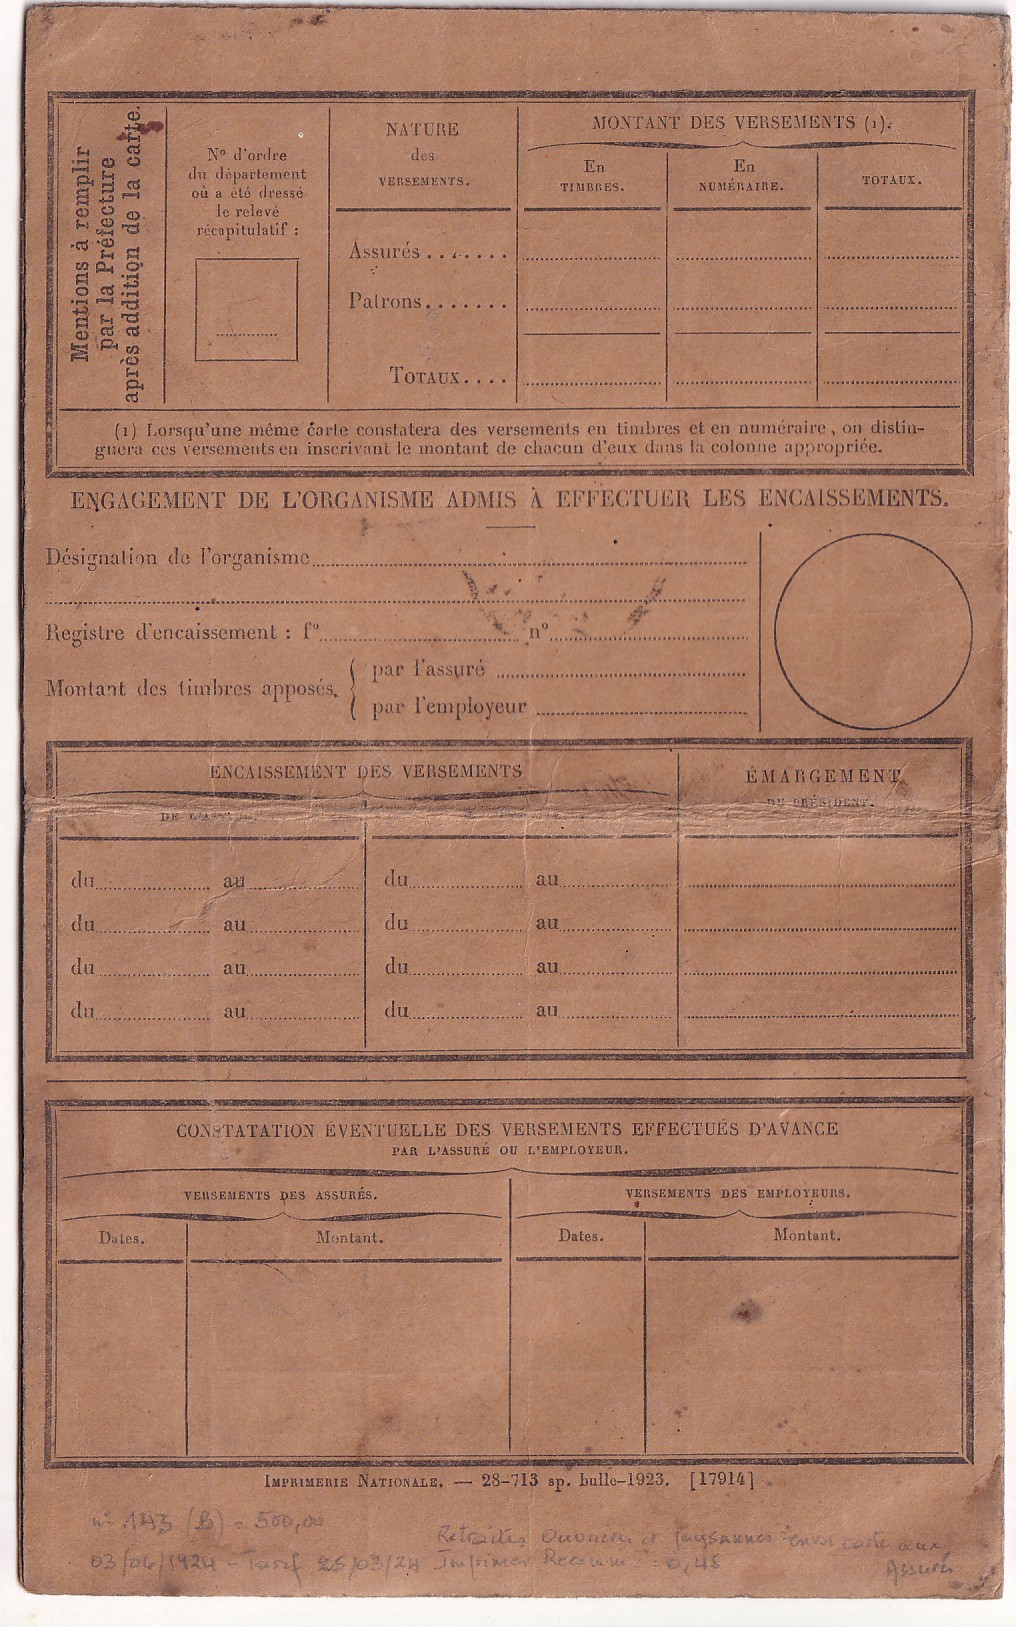 Mentions à remplir
par la Préfecture
après addition de la carte.
N° d'ordre
du département
où a été dressé
le relevé
récapitulatif :
NATURE
des
VERSEMENTS.
MONTANT DES VERSEMENTS (1).
En
TIMBRES.
En
NUMÉRAIRE.
TOTAUX.
Assurés
Patrons
TOTAUX
(1) Lorsqu'une même carte constatera des versements en timbres et en numéraire, on distin-
guera ces versements en inscrivant le montant de chacun d'eux dans la colonne appropriée.
ENGAGEMENT DE L'ORGANISME ADMIS À EFFECTUER LES ENCAISSEMENTS.
Désignation de l'organisme
Registre d'encaissement : f° n°
Montant des timbres apposés.
par l'assuré
par l'employeur
ENCAISSEMENT DES VERSEMENTS
ÉMARGEMENT
DU PRÉSIDENT.
du au du au
du au du au
du au du au
du au du au
CONSTATATION ÉVENTUELLE DES VERSEMENTS EFFECTUÉS D'AVANCE
PAR L'ASSURÉ OU L'EMPLOYEUR.
VERSEMENTS DES ASSURÉS. VERSEMENTS DES EMPLOYEURS.
Dates. Montant. Dates. Montant.
IMPRIMERIE NATIONALE. — 28-713 sp. bulle-1923. [17914]
n° 143 (B) = 500,00
Retraites Ouvrières et Paysannes envoi carte aux
03/06/1924 - Tarif 25/03/24 Imprimés = 0,45
Assurés